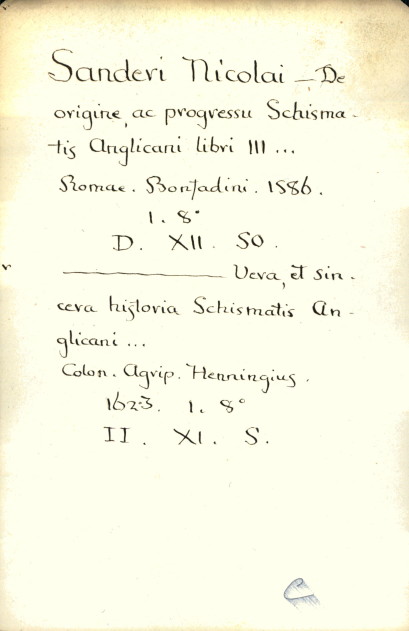 Sanderi Nicolai — De
origine, ac progressu Schisma-
tis Anglicani libri III ...
Romae. Bonfadini. 1586.
1. 8°
D. XII. 50.
———— Vera, et sin-
cera historia Schismatis An-
glicani ...
Colon. Agrip. Henningius.
1623. 1. 8°
II. XI. S.